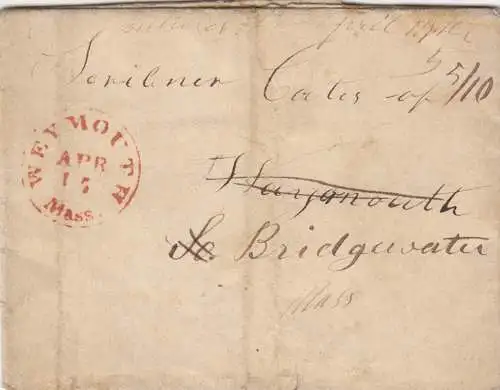 april 17th
Scribner Cates of 5
5/10
WEYMOUTH
APR
17
Mass.
Waymouth
So. Bridgewater
Mass